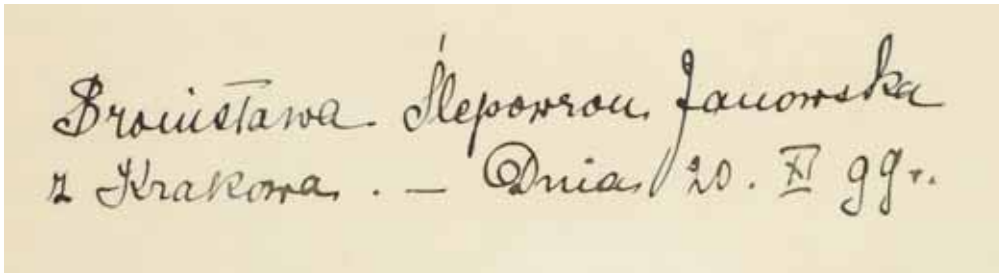 Bronisława Ślepowron Janowska
z Krakowa. — Dnia 20. XI 99 r.